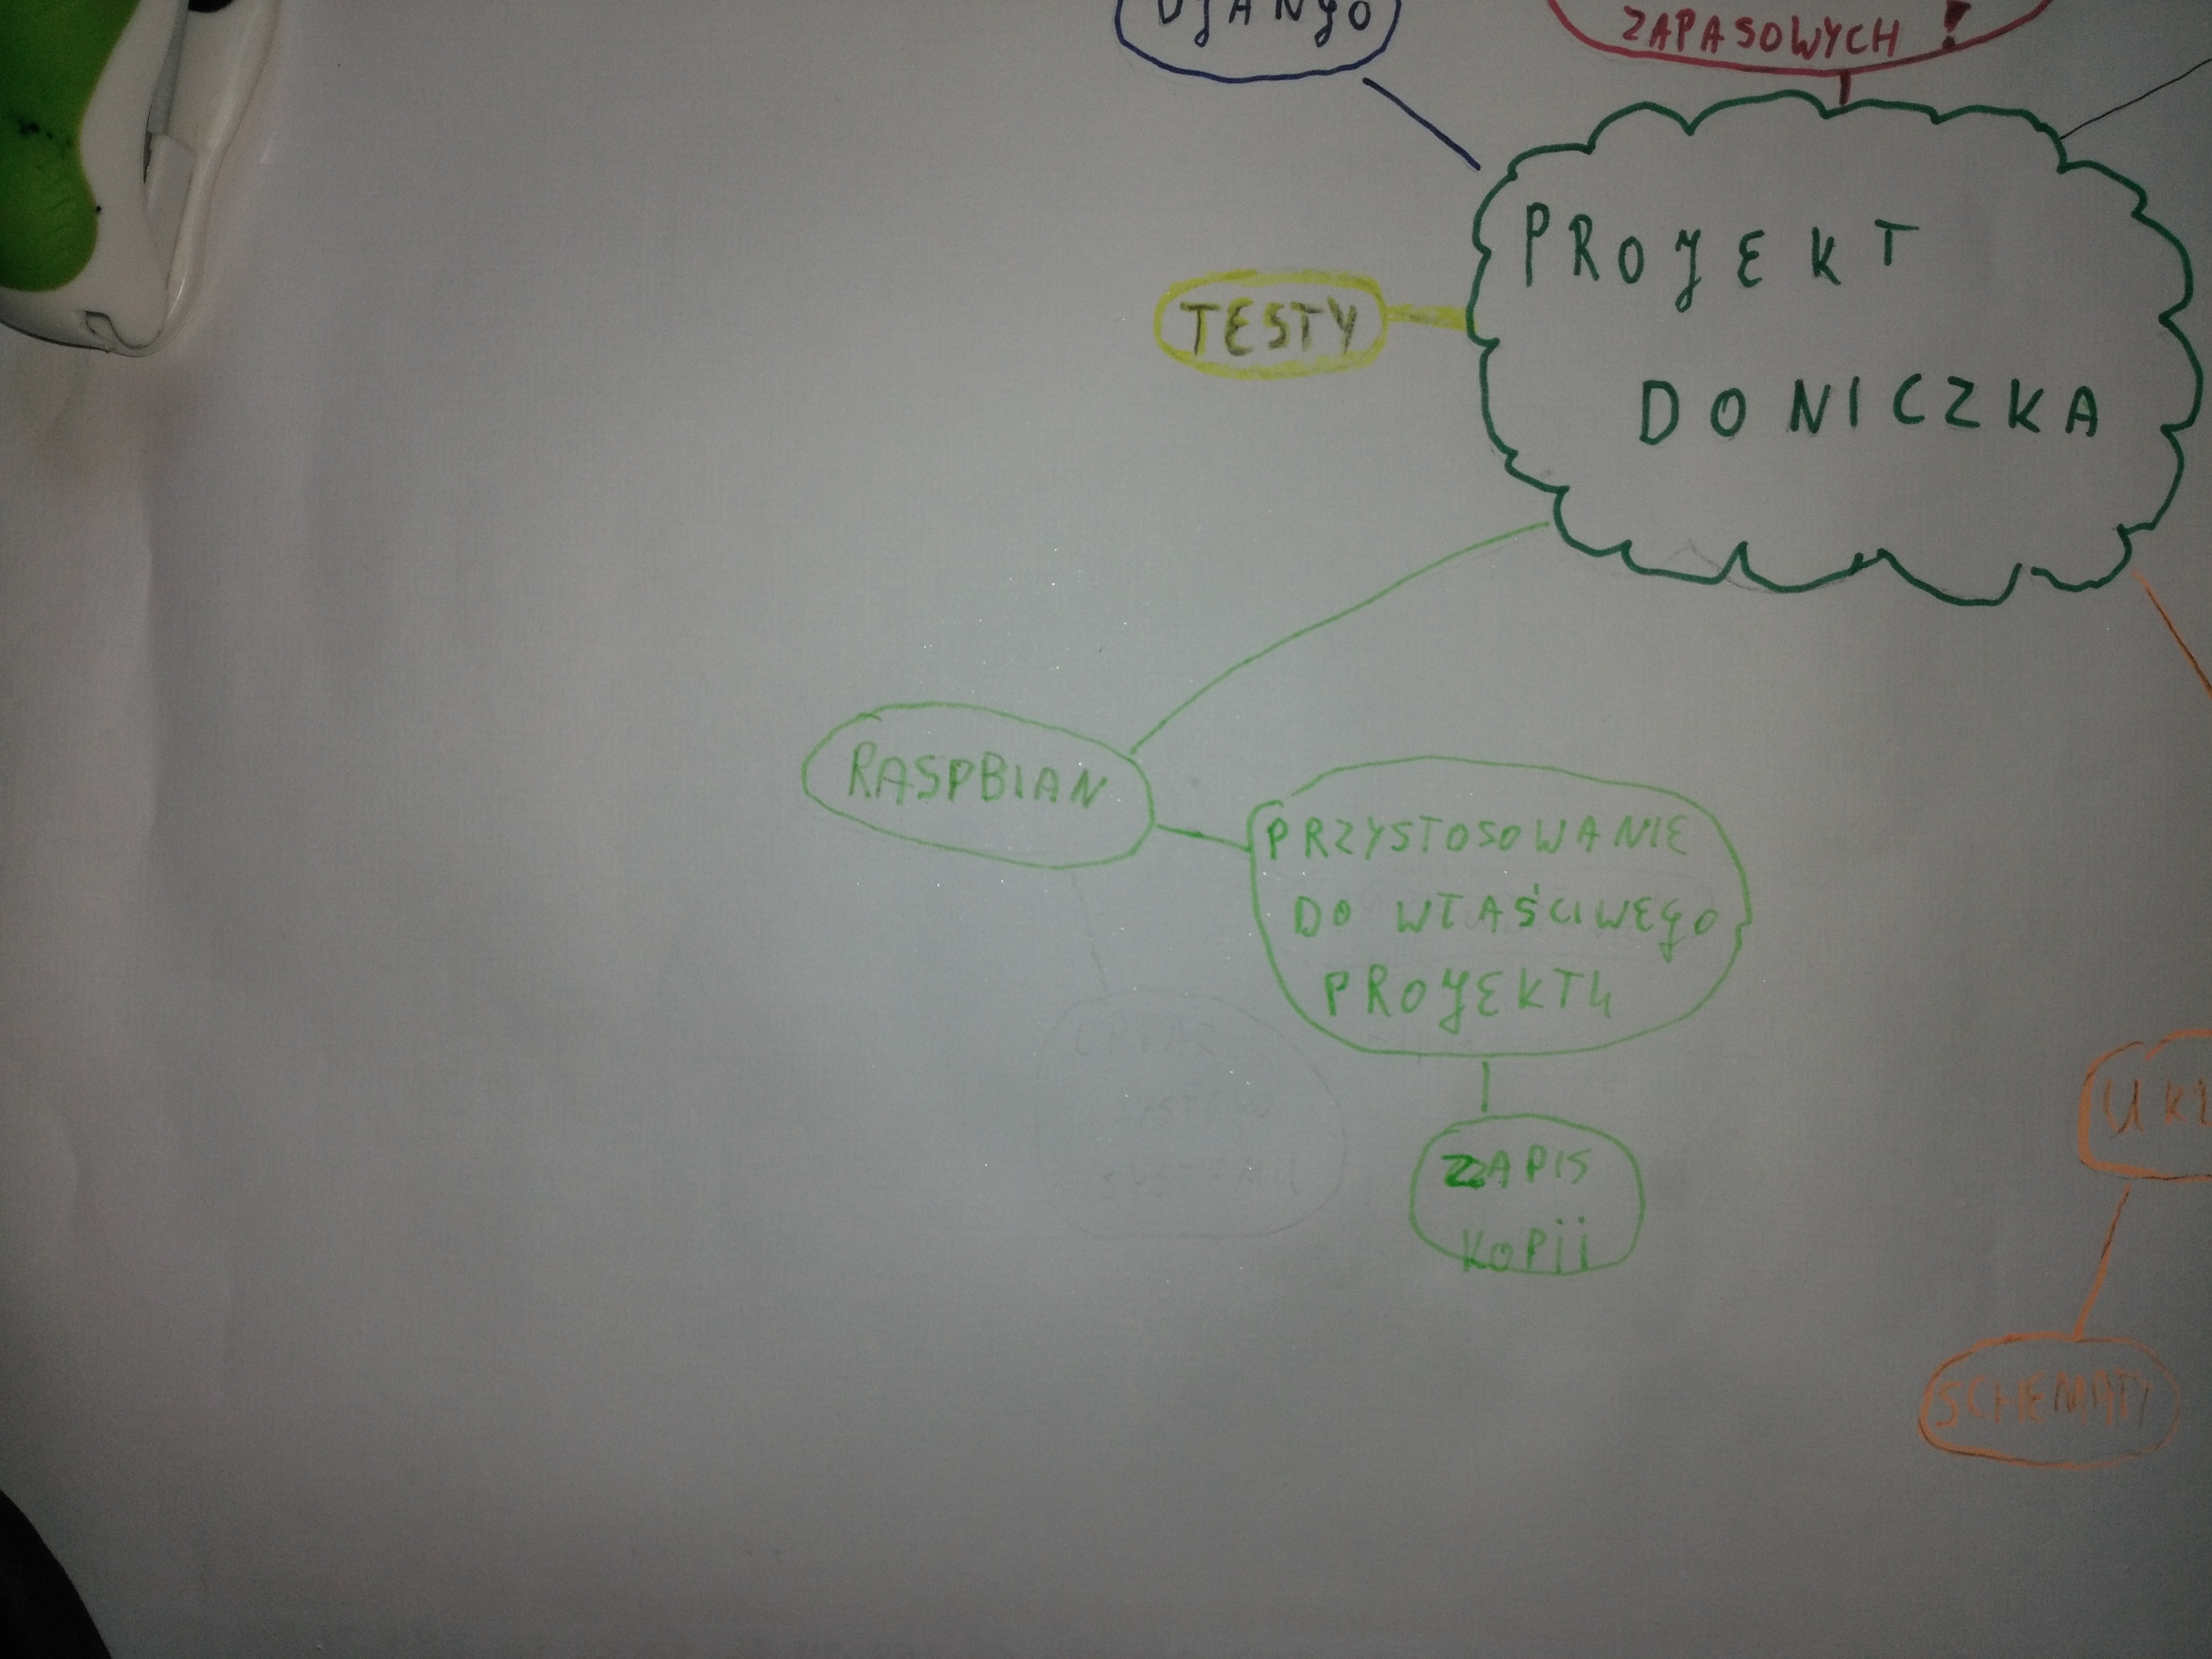 DJANGO
ZAPASOWYCH !
PROJEKT
DONICZKA
TESTY
RASPBIAN
PRZYSTOSOWANIE
DO WŁAŚCIWEGO
PROJEKTU
ZAPIS
KOPii
SCHEMATY